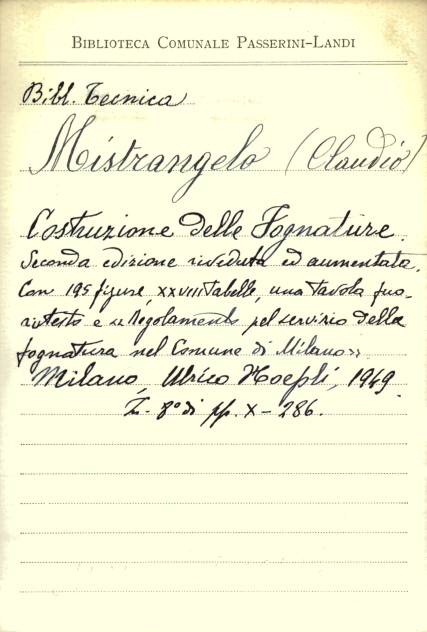 BIBLIOTECA COMUNALE PASSERINI-LANDI
Bibl. Tecnica
Mistrangelo (Claudio)
Costruzione delle Fognature.
Seconda edizione riveduta ed aumentata.
Con 195 figure, XXVIII tabelle, una tavola fuo-
ritesto e «Regolamento pel servizio della
fognatura nel Comune di Milano»
Milano, Ulrico Hoepli, 1949.
8° di pp. X-286.